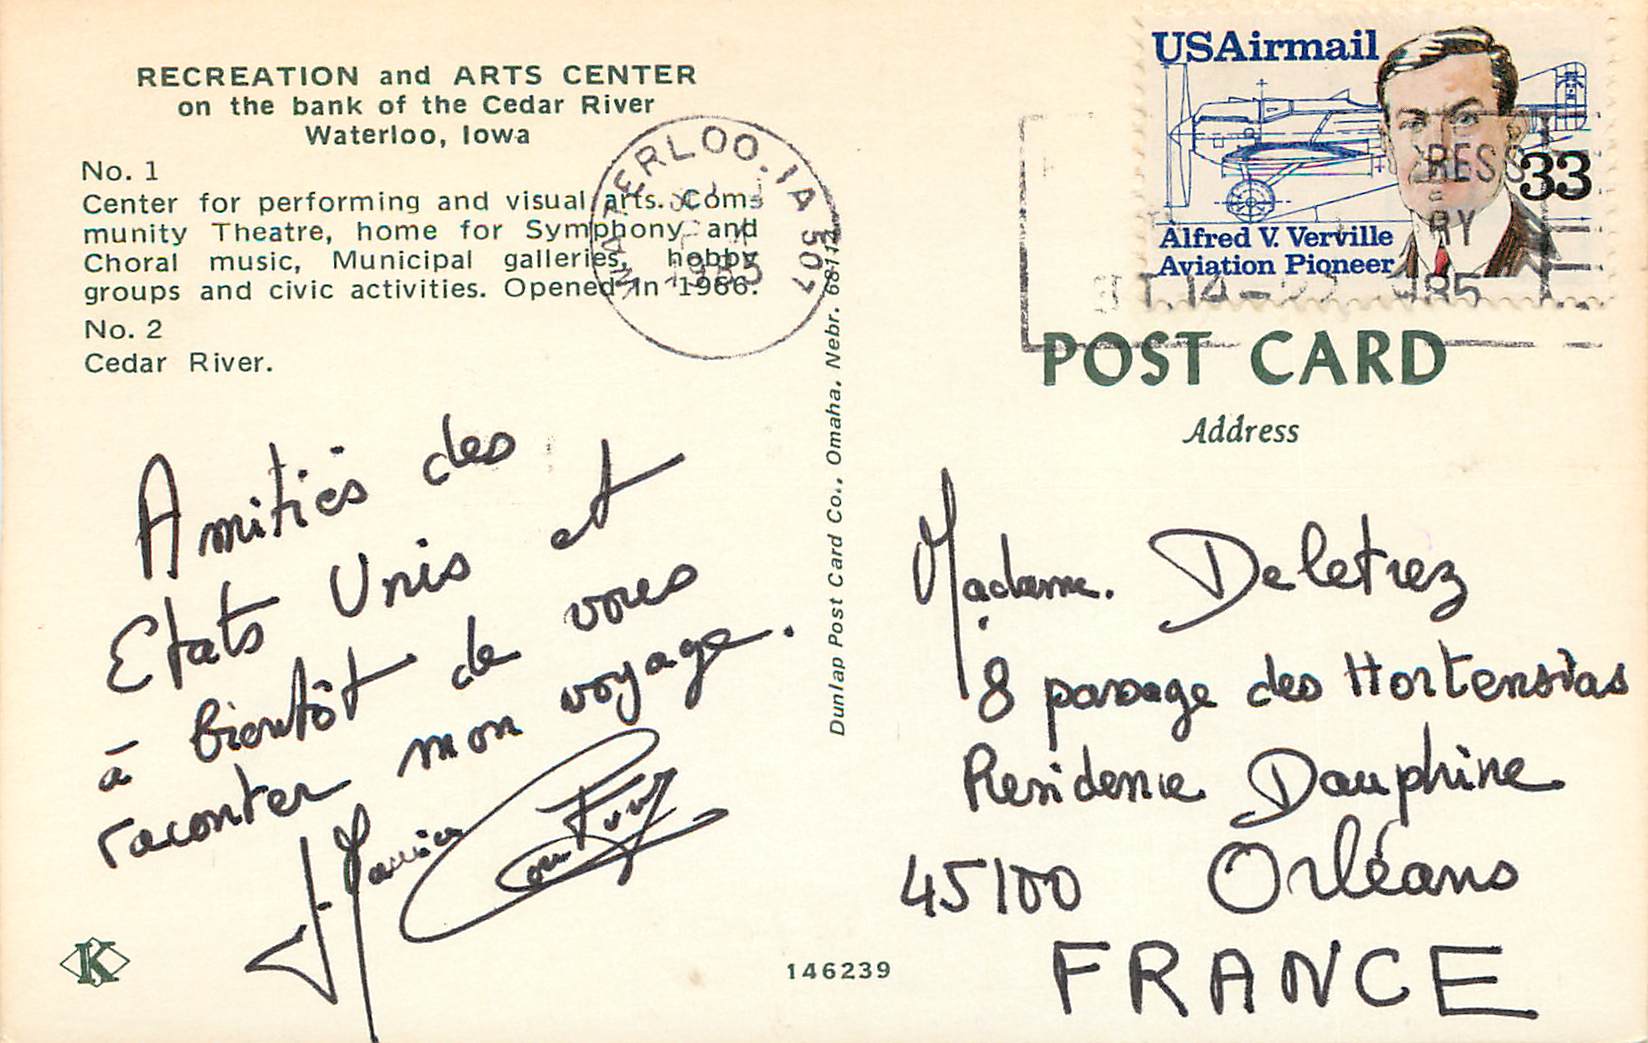 RECREATION and ARTS CENTER
on the bank of the Cedar River
Waterloo, Iowa
No. 1
Center for performing and visual arts. Coms
munity Theatre, home for Symphony and
Choral music, Municipal galleries, hobby
groups and civic activities. Opened in 1966.
No. 2
Cedar River.
WATERLOO, IA 507
1985
USAirmail
33
Alfred V. Verville
Aviation Pioneer
POST CARD
Address
Dunlap Post Card Co., Omaha, Nebr. 68112
Amitiés des
Etats Unis et
à bientôt de vous
raconter mon voyage.
Madame. Deletrez
8 passage des Hortensias
Residence Dauphine
45100 Orléans
FRANCE
K
146239